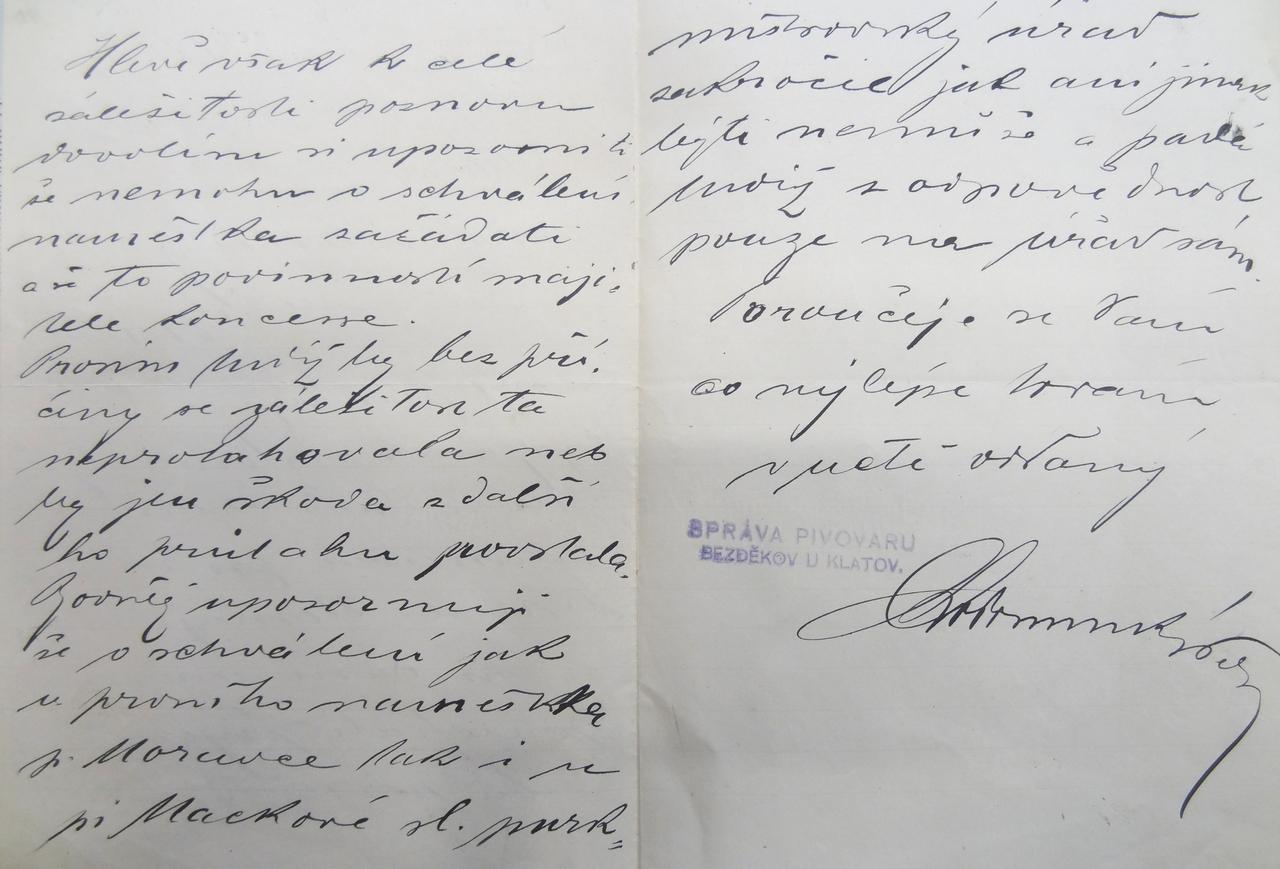 Hlevě však k celé
záležitosti poznovu
dovolím si upozorniti
že nemohu o schválení
naměstka zažádati
a že to povinností maji-
tele koncesse.
Prosím by bez pří-
činy se záležitost ta
neprotahovala neb
by jen škoda z další
ho průtahu povstala.
Zároveň upozorňuji
že o schválení jak
u prvního naměstka
p. Moravce tak i u
pí Mackové sl. purk-
mistrovský úřad
zakročil jak ani jinak
býti nemůže a padá
z odpovědnost
pouze na úřad sám.
Poroučeje se Vám
co nejlépe trvám
v úctě oddaný
SPRÁVA PIVOVARU
BEZDĚKOV U KLATOV.